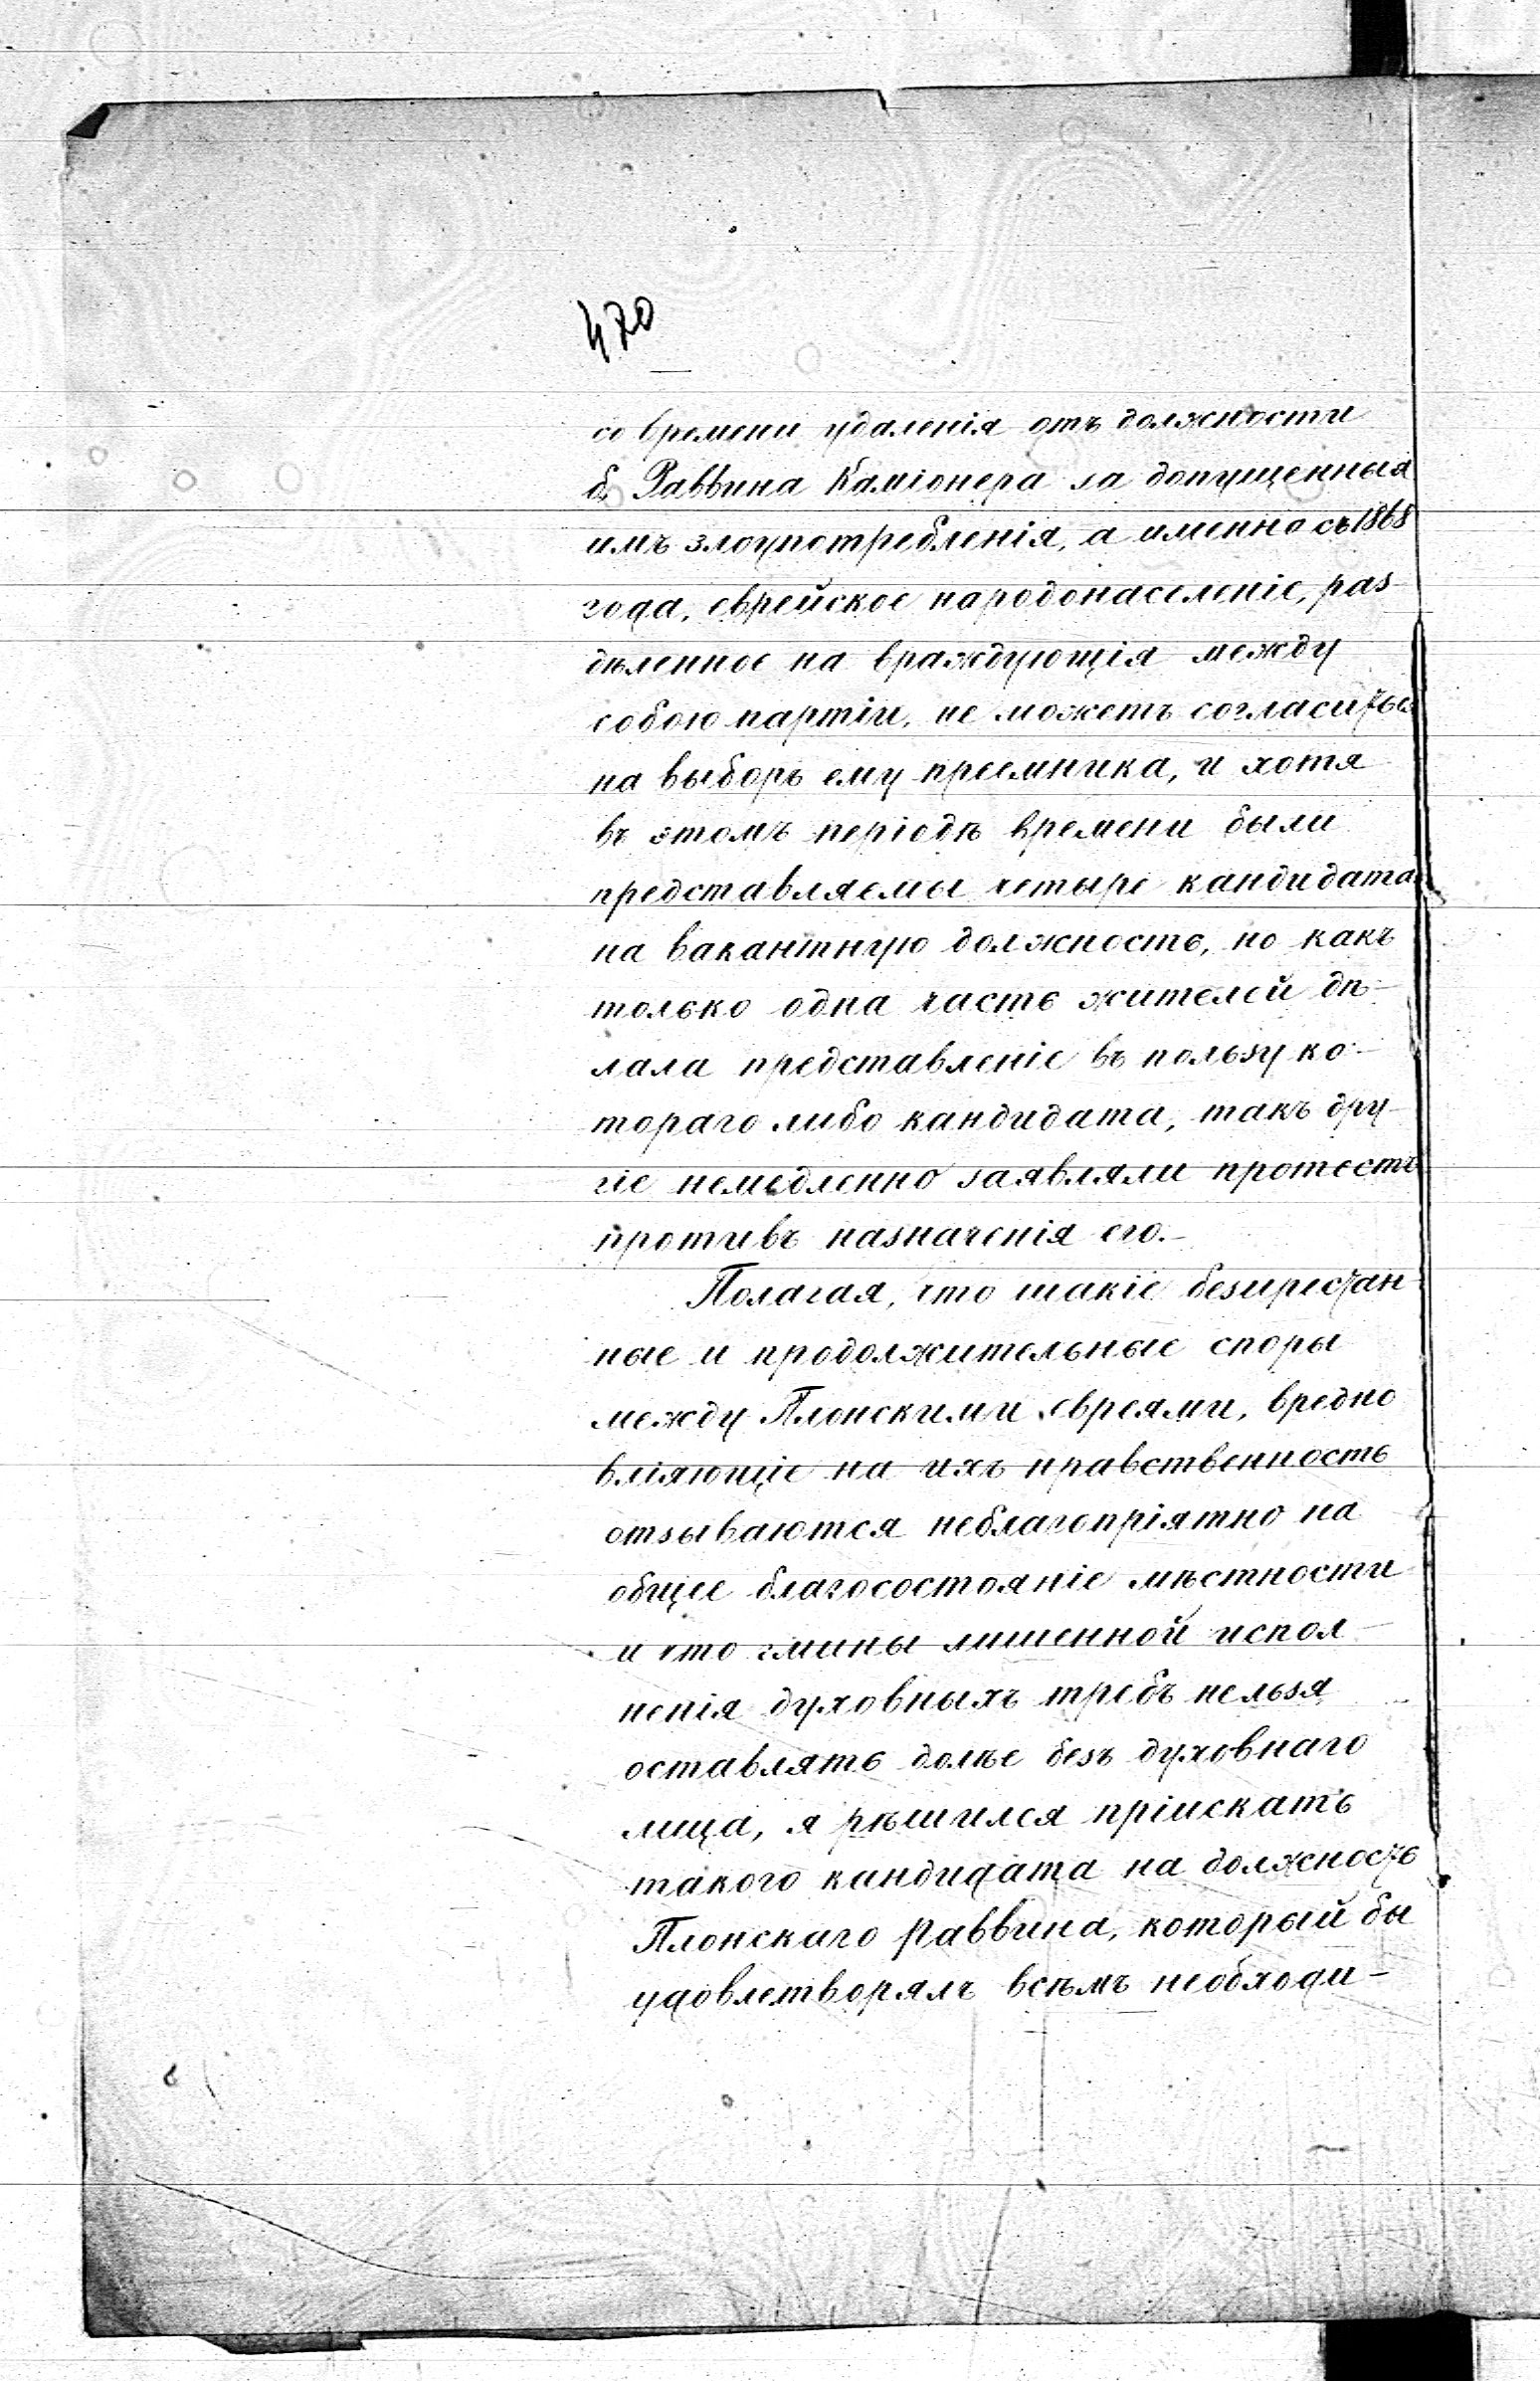 470
со времени удаленія отъ должности
б. Раввина Каміонера за допущенныя
имъ злоупотребленія, а именно съ 1868
года, еврейское народонаселеніе, раз-
дѣленное на враждующія между
собою партіи, не можетъ согласиться
на выборъ ему преемника, и хотя
въ этомъ періодѣ времени были
представляемы четыре кандидата
на вакантную должность, но какъ
только одна часть жителей дѣ-
лала представленіе въ пользу ко-
тораго либо кандидата, такъ дру-
гіе немедленно заявляли протестъ
противъ назначенія его.-
Полагая, что такіе безпрестан-
ные и продолжительные споры
между Плонскими евреями, вредно
вліяющіе на ихъ нравственность
отзываются неблагопріятно на
общее благосостояніе мѣстности
и что гмины лишенной испол-
ненія духовныхъ требъ нельзя
оставлять долѣе безъ духовнаго
лица, я рѣшился пріискать
такого кандидата на должность
Плонскаго Раввина, который бы
удовлетворялъ всѣмъ необходи-